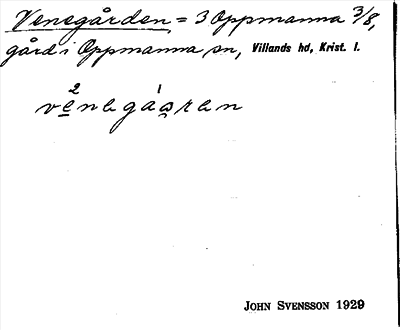 Venegården = 3 Oppmanna 3/8,
gård i Oppmanna sn, Villands hd, Krist. l.
2 1
venegåɷren
JOHN SVENSSON 1929